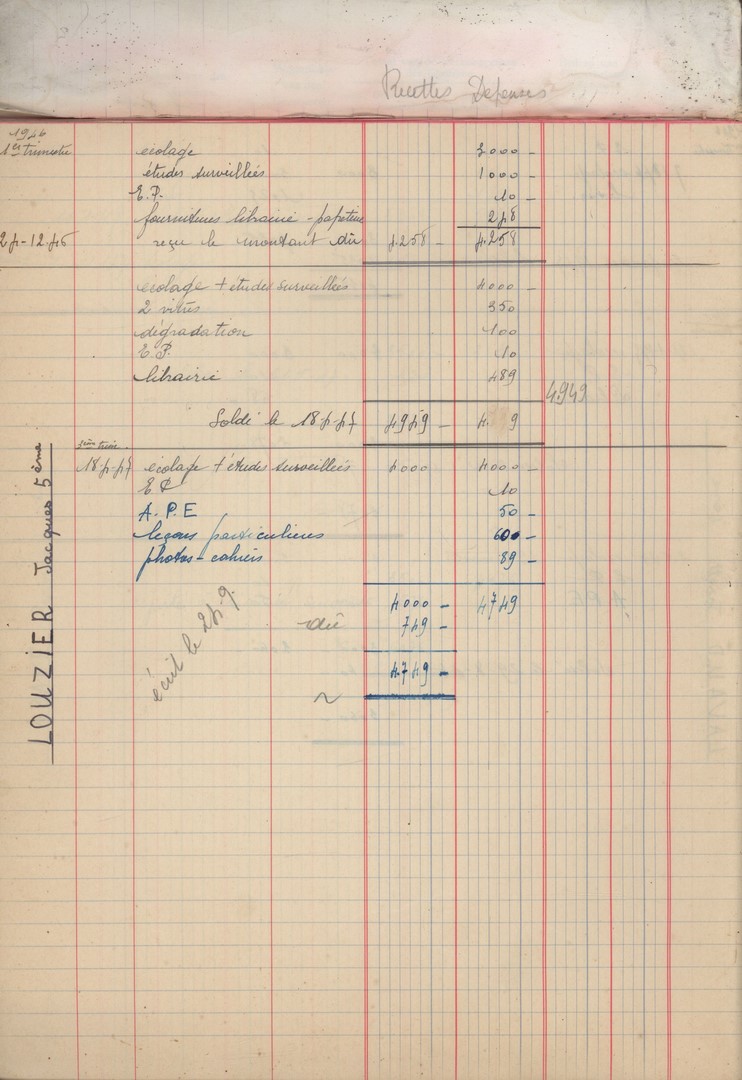 Recettes Dépenses
1946
1er trimestre
écolage 3000 -
études surveillées 1000 -
E.P. 10 -
fournitures librairie - papeterie 248
24-12-46 reçu le montant dû 4.258 - 4.258
écolage + études surveillées 4000 -
2 vitres 350
dégradation 100
E.P. 10
librairie 489
4949
Soldé le 18-4-47 4949 - 4. 9
3ème trim
18-4-47 écolage + études surveillées 4000 4000 -
E P 10
A.P.E 50 -
leçons particulières 600 -
photos - cahiers 89 -
4000 - 4749
dû 749 -
4.749 -
écrit le 24.9.
LOUZIER Jacques 5ème